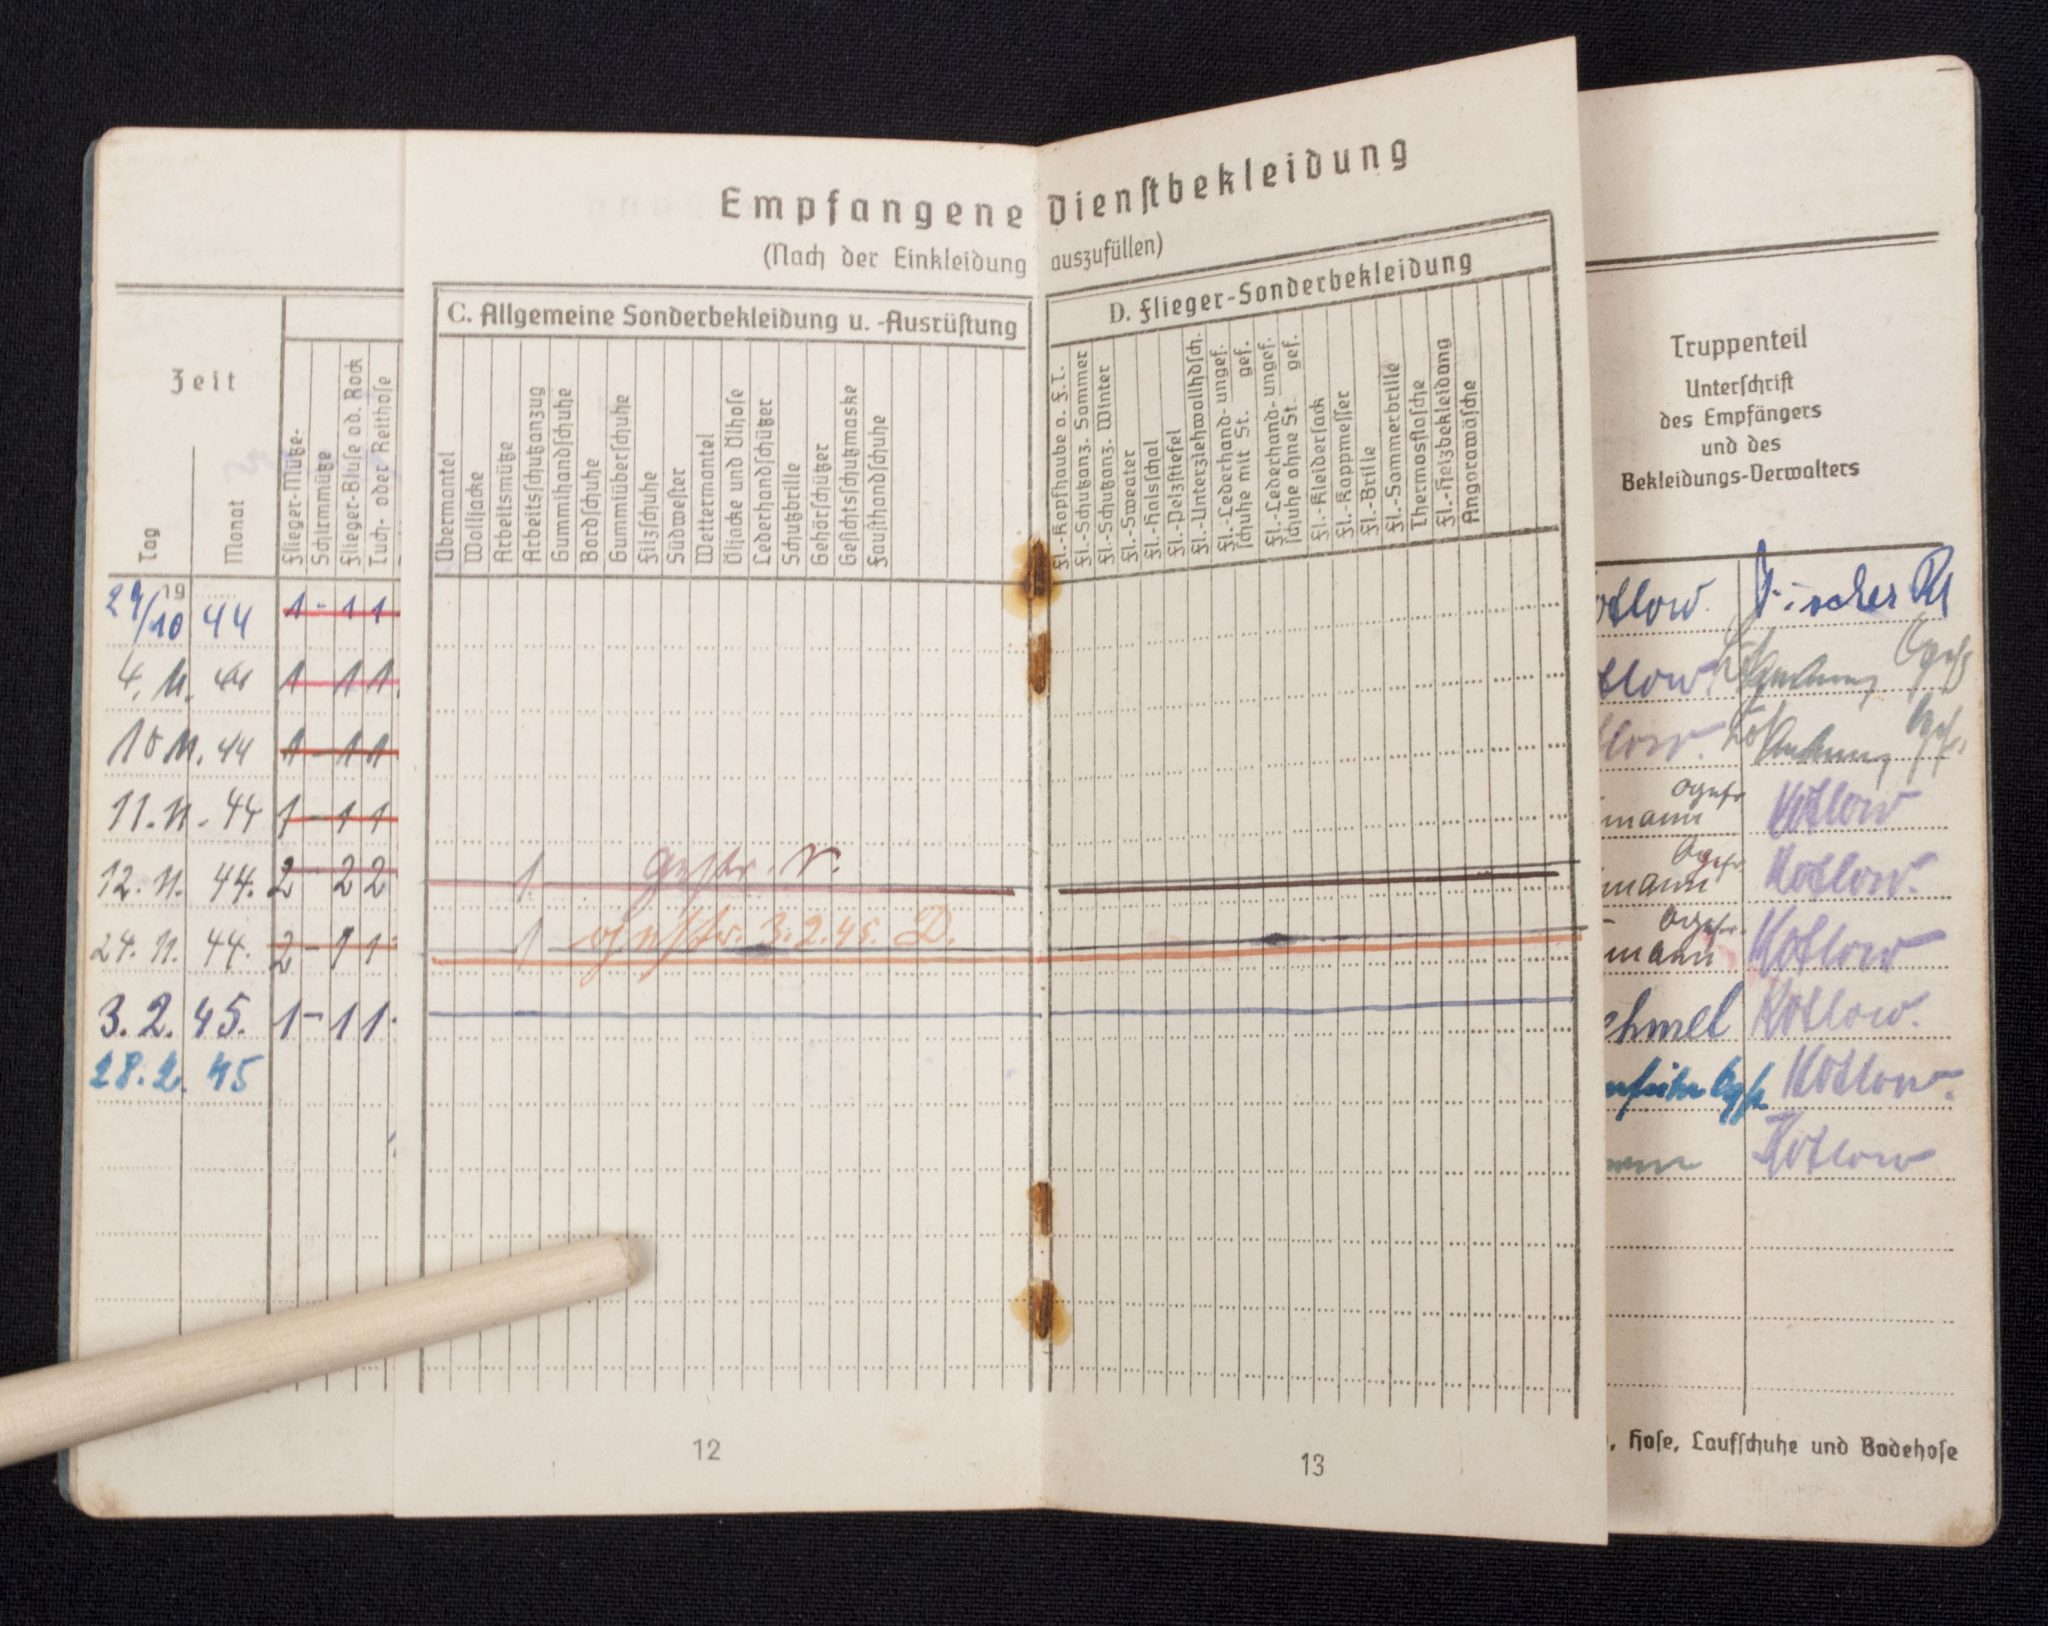 Empfangene Dienstbekleidung
(Nach der Einkleidung auszufüllen)
Zeit
Tag
Monat
Flieger-Mütze-
Schirmmütze
Flieger-Bluse od. Rock
Tuch- oder Reithose
C. Allgemeine Sonderbekleidung u. -Ausrüstung
Übermantel
Walljacke
Arbeitsmütze
Arbeitsschutzanzug
Gummihandschuhe
Bordschuhe
Gummiüberschuhe
Filzschuhe
Südwester
Wettermantel
Öljacke und Ölhose
Lederhandschützer
Schutzbrille
Gehörschützer
Gesichtsschutzmaske
Fausthandschuhe
D. Flieger-Sonderbekleidung
Fl.-Kopfhaube o. F.T.
Fl.-Schutzanz. Sommer
Fl.-Schutzanz. Winter
Fl.-Sweater
Fl.-Halsschal
Fl.-Pelzstiefel
Fl.-Unterziehwollhdsch.
Fl.-Lederhand- ungef.
schuhe mit St. gef.
Fl.-Lederhand- ungef.
schuhe ohne St. gef.
Fl.-Kleidersack
Fl.-Kappmesser
Fl.-Brille
Fl.-Sommerbrille
Thermosflasche
Fl.-Heizbekleidung
Angorawäsche
Truppenteil
Unterschrift
des Empfängers
und des
Bekleidungs-Verwalters
19
29/10 44 1 - 1 1 Fischer
4. 11. 44 1 - 1 1
10 11. 44 1 - 1 1
11. 11. 44 1 - 1 1 mann Ogefr Kotlow
12. 11. 44. 2 2 2 1 gestr. mann Ogefr Kotlow.
24. 11. 44. 2 - 1 1 1 gestr. 3.2.45. D. mann Ogefr. Kotlow
3. 2. 45. 1 - 1 1 ehmel Kotlow.
28. 2. 45 Kotlow.
Kotlow
, Hose, Laufschuhe und Badehose
12
13